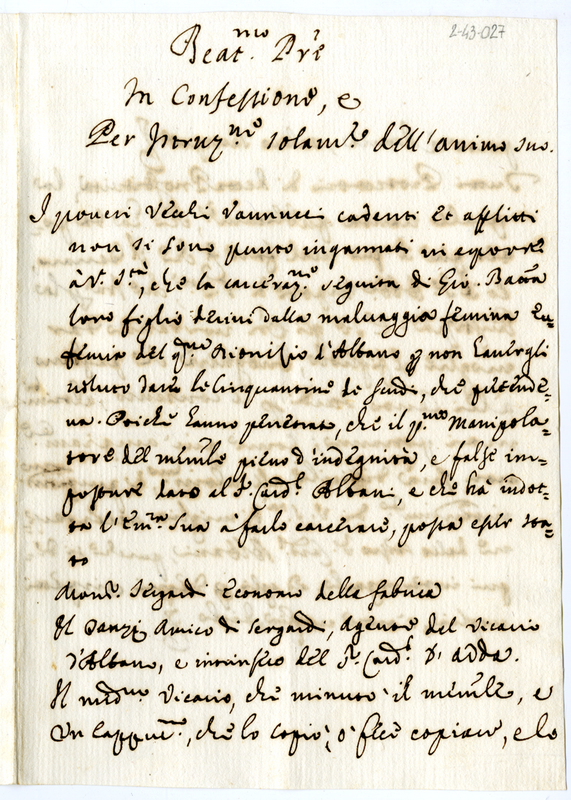 2-43-027
Beat.mo Pre
In Confessione, e
Per Istruz.ne solam.te dell'animo suo.
I poveri Vecchi Vannucci cadenti et afflitti
non si sono punto ingannati in esporre
à V. S.tà, che la carceraz.ne seguita di Gio. Batta
loro figlio derivi dalla malvaggia femina Eu=
femia del q.m Dionisio d'Albano non haverli
voluto dare le Cinquantine de scudi, che pretende=
va. Poiche hanno penetrato, che il p.mo Manipola=
tore del pieno d'indegnità, e false im=
posture dato al S. Card.l Albani, e che hà indot=
ta l'Em.za Sua à farlo carcerare, possa esser sta=
to
Mons.r Sergardi Economo della fabrica
Il Amico di Sergardi, Agente del Vicario
d'Albano, e intrinseco del S.r Card.l D'Adda.
Il med.mo Vicario, che minutò il, e
Un Cappuc.no, che lo copiò, ò fece copiare, e lo